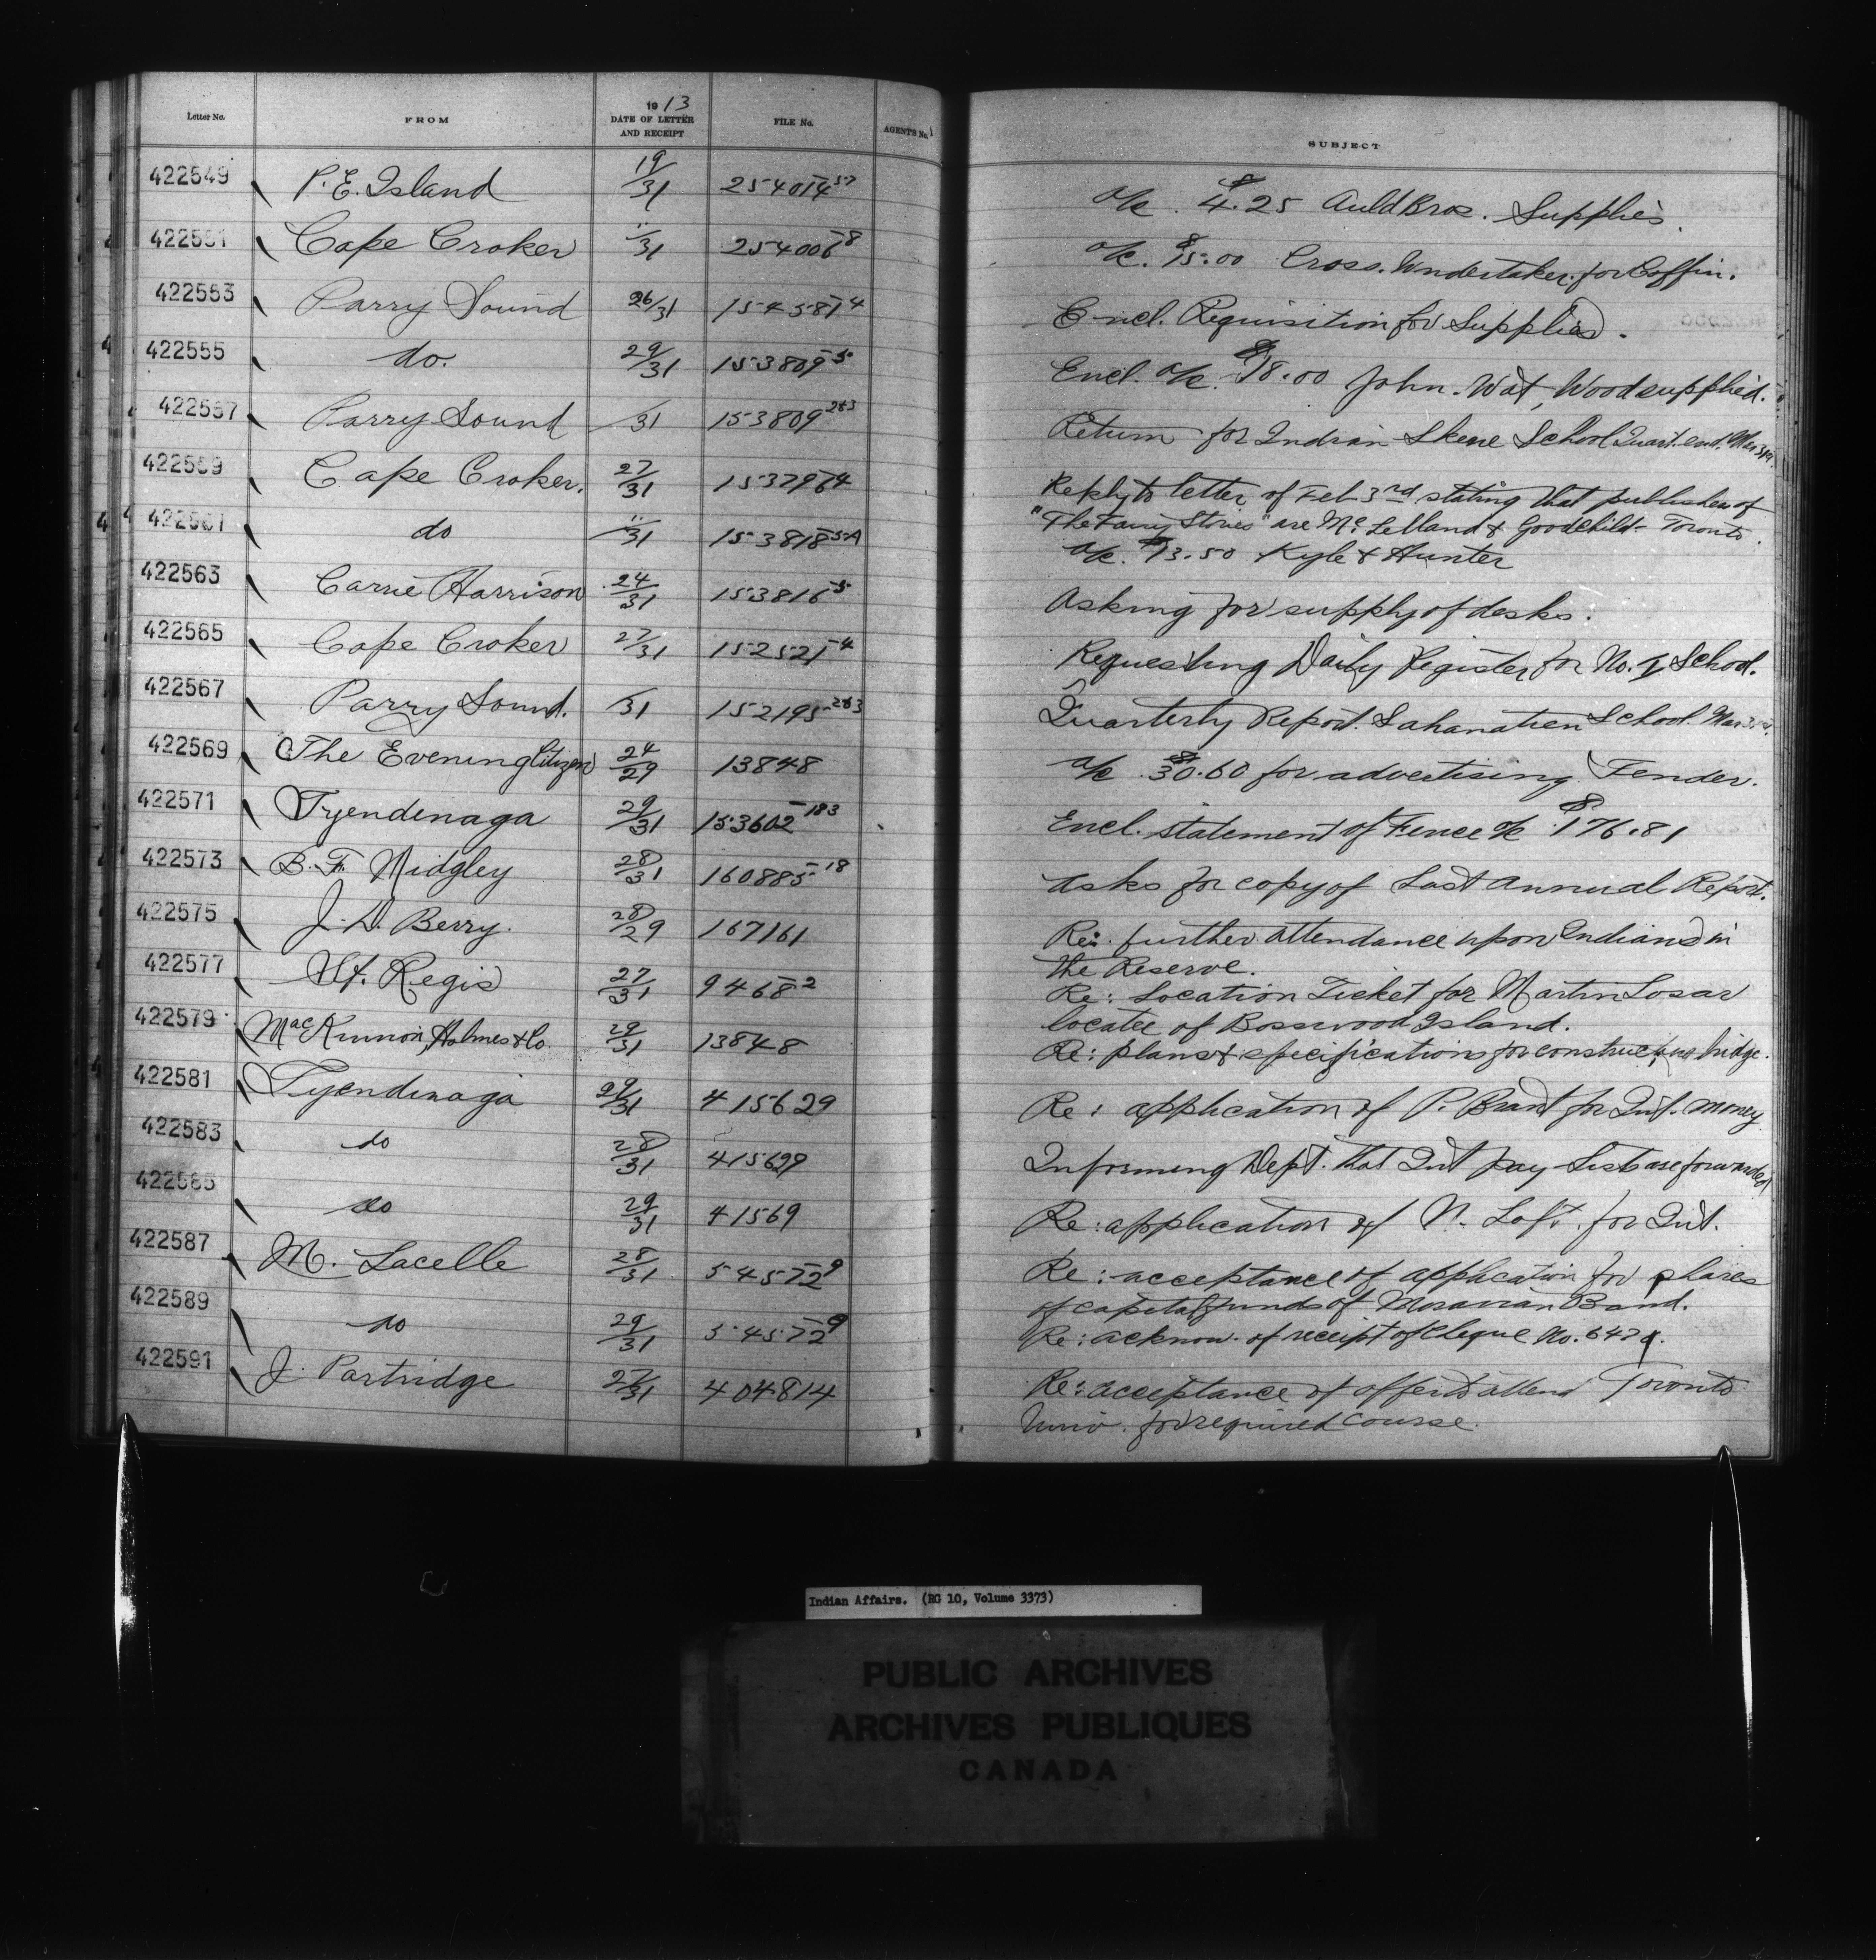 Letter No. FROM 1913 DATE OF LETTER AND RECEIPT FILE No. AGENT'S No. SUBJECT
422549 P.E. Island 19/31 254014-57 a/c. $4.25 Auld Bros. Supplies.
422551 Cape Croker "/31 254006-8 a/c. $15.00 Cross. Undertaker. for Coffin.
422553 Parry Sound 26/31 154581-4 Encl. Requisition for Supplies.
422555 do. 29/31 153809-5 Encl. a/c. $18.00 John. Wat, Wood supplied.
422557 Parry Sound /31 153809-283 Return for Indian Skene School Quart. end. Mar 31st.
422559 Cape Croker. 27/31 153796-4 Reply to letter of Feb 3rd stating that publisher of
"The Fairy Stories" are McLelland & Goodchild - Toronto.
422561 do "/31 153818-5A a/c. $13.50 Kyle & Hunter
422563 Carrie Harrison 24/31 153816-5 Asking for supply of desks.
422565 Cape Croker 27/31 152521-4 Requesting Daily Register for No. 1 School.
422567 Parry Sound. /31 152195-283 Quarterly Report. Sahanatien School Mar 31st.
422569 The Evening Citizen 24/29 13848 a/c $30.60 for advertising Tender.
422571 Tyendinaga 29/31 153602-183 Encl. statement of Fence a/c $176.81
422573 B. F. Midgley 28/31 160885-18 Asks for copy of Last Annual Report.
422575 J. D. Berry. 28/29 167161 Re: further attendance upon Indians in
the Reserve.
422577 St. Regis 27/31 9468-2 Re: Location Ticket for Martin
locatee of Bosswood Island.
422579 MacKinnon, Holmes & Co. 29/31 13848 Re: plans & specifications for constructing bridge.
422581 Tyendinaga 29/31 415629 Re: application of P. Brant for Int. money
422583 do 28/31 415629 Informing Dept. that Int pay Lists are forwarded
422585 do 29/31 41569 Re: application of N. Loft. for Int.
422587 M. Lacelle 28/31 54572-9 Re: acceptance of application for shares
of capital funds of Moravian Band.
422589 do 29/31 54572-9 Re: acknow. of receipt of Cheque No.
422591 J. Partridge 27/31 404814 Re: acceptance of offer to attend Toronto
Univ. for required course.
Indian Affairs. (RG 10, Volume 3373)
PUBLIC ARCHIVES
ARCHIVES PUBLIQUES
CANADA